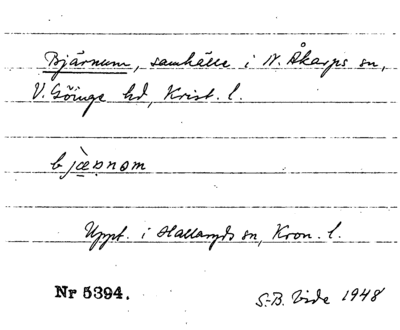 Bjärnum, samhälle i N. Åkarps sn,
V. Göinge hd, Krist. l.
bjæ̀ṇnəm
Uppt. i Hallaryds sn, Kron. l.
Nr 5394.
S.-B. Vide 1948